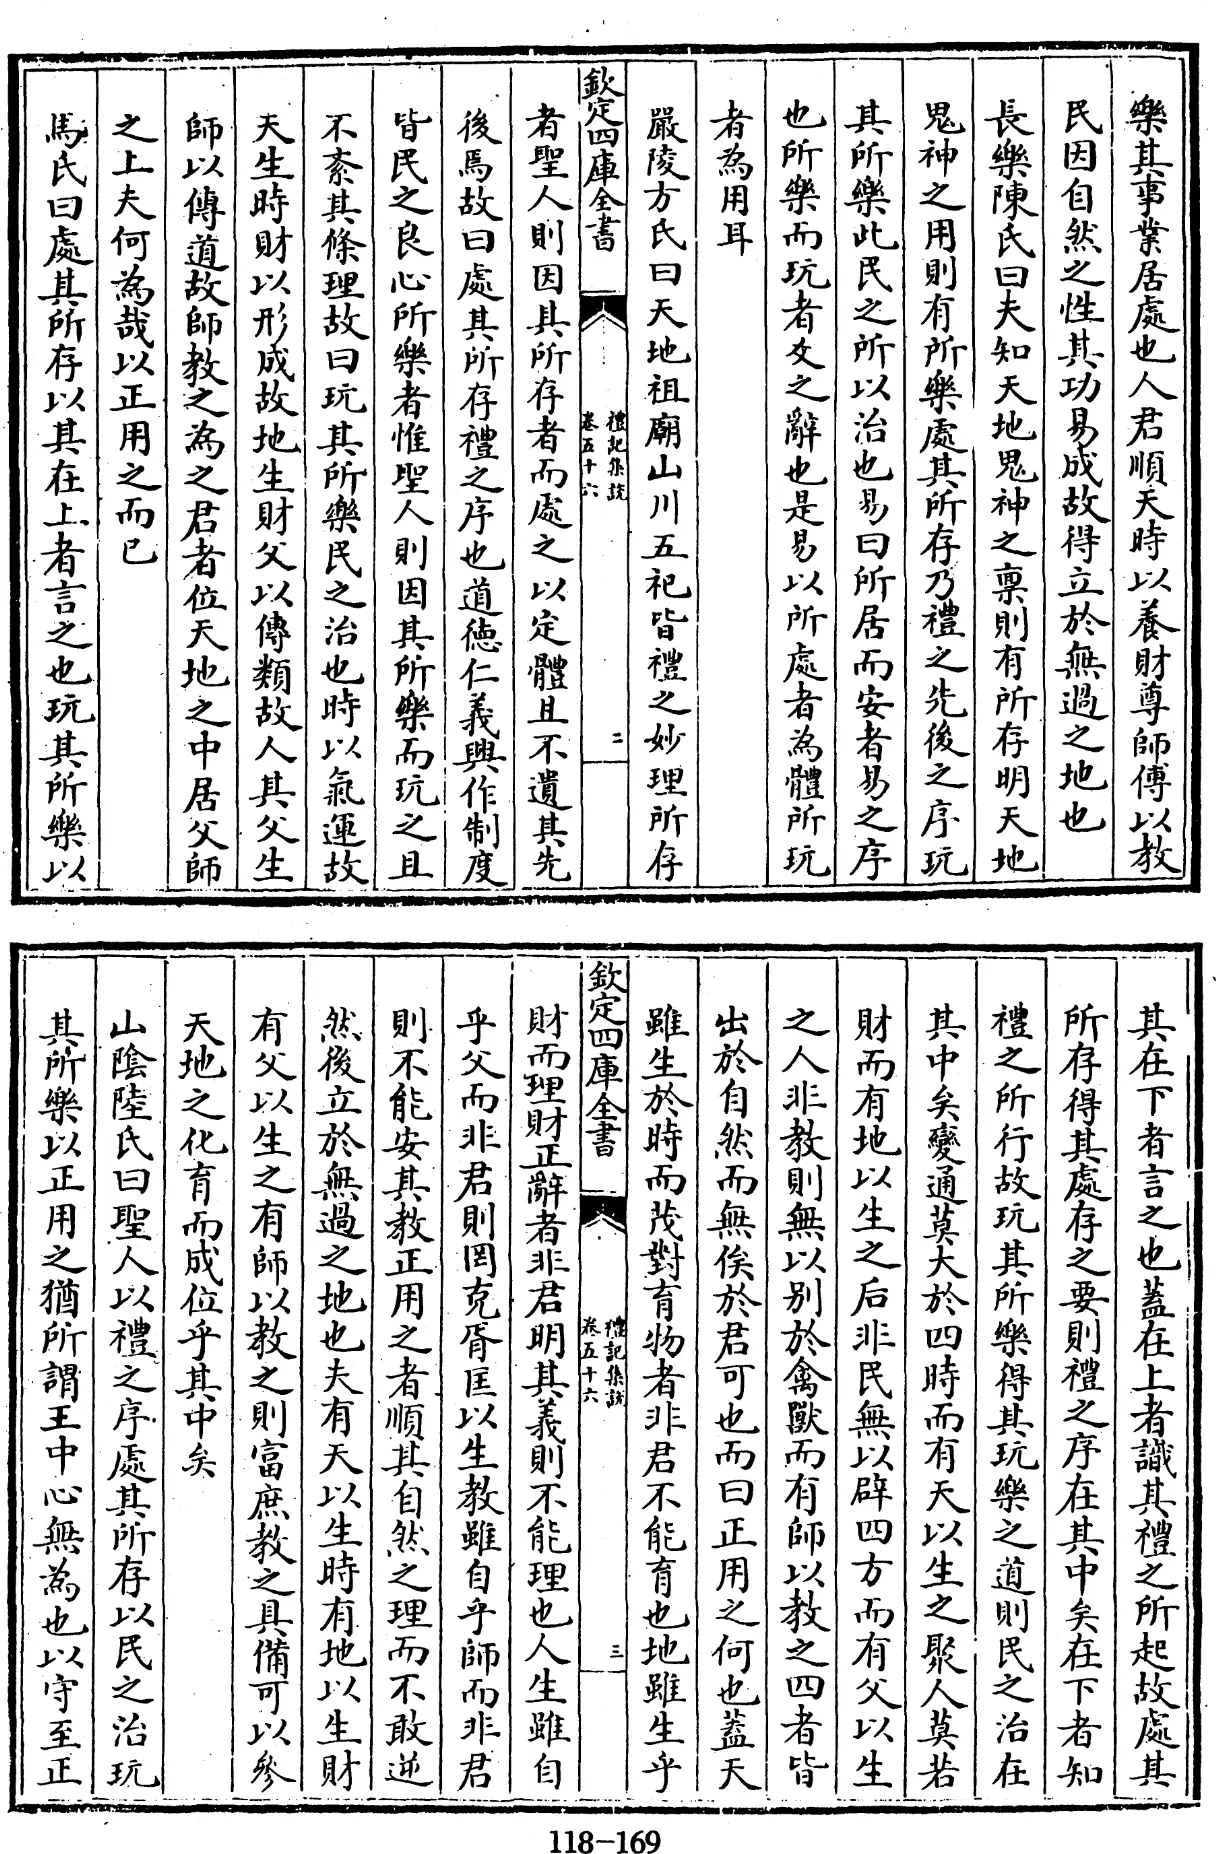 樂其事業居處也人君順天時以養財尊師傅以教
民因自然之性其功易成故得立於無過之地也
長樂陳氏曰夫知天地鬼神之禀則有所存明天地
鬼神之用則有所樂處其所存乃禮之先後之序玩
其所樂此民之所以治也易曰所居而安者易之序
也所樂而玩者爻之辭也是易以所處者為體所玩
者為用耳
嚴陵方氏曰天地祖廟山川五祀皆禮之妙理所存
欽定四庫全書
禮記集說
卷五十六
二
者聖人則因其所存者而處之以定體且不遺其先
後焉故曰處其所存禮之序也道德仁義興作制度
皆民之良心所樂者惟聖人則因其所樂而玩之且
不紊其條理故曰玩其所樂民之治也時以氣運故
天生時財以形成故地生財父以傳類故人其父生
師以傳道故師教之為之君者位天地之中居父師
之上夫何為哉以正用之而已
馬氏曰處其所存以其在上者言之也玩其所樂以
其在下者言之也蓋在上者識其禮之所起故處其
所存得其處存之要則禮之序在其中矣在下者知
禮之所行故玩其所樂得其玩樂之道則民之治在
其中矣變通莫大於四時而有天以生之聚人莫若
財而有地以生之后非民無以辟四方而有父以生
之人非教則無以別於禽獸而有師以教之四者皆
出於自然而無俟於君可也而曰正用之何也蓋天
雖生於時而茂對育物者非君不能育也地雖生乎
欽定四庫全書
禮記集說
卷五十六
三
財而理財正辭者非君明其義則不能理也人生雖自
乎父而非君則罔克胥匡以生教雖自乎師而非君
則不能安其教正用之者順其自然之理而不敢逆
然後立於無過之地也夫有天以生時有地以生財
有父以生之有師以教之則富庶教之具備可以參
天地之化育而成位乎其中矣
山陰陸氏曰聖人以禮之序處其所存以民之治玩
其所樂以正用之猶所謂王中心無為也以守至正
118-169